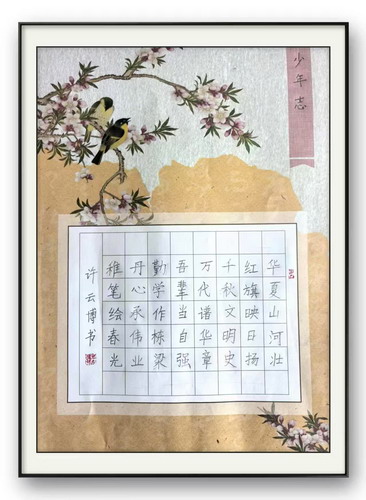 少年志
华夏山河壮
红旗映日扬
千秋文明史
万代谱华章
吾辈当自强
勤学作栋梁
丹心承伟业
稚笔绘春光
许云博书